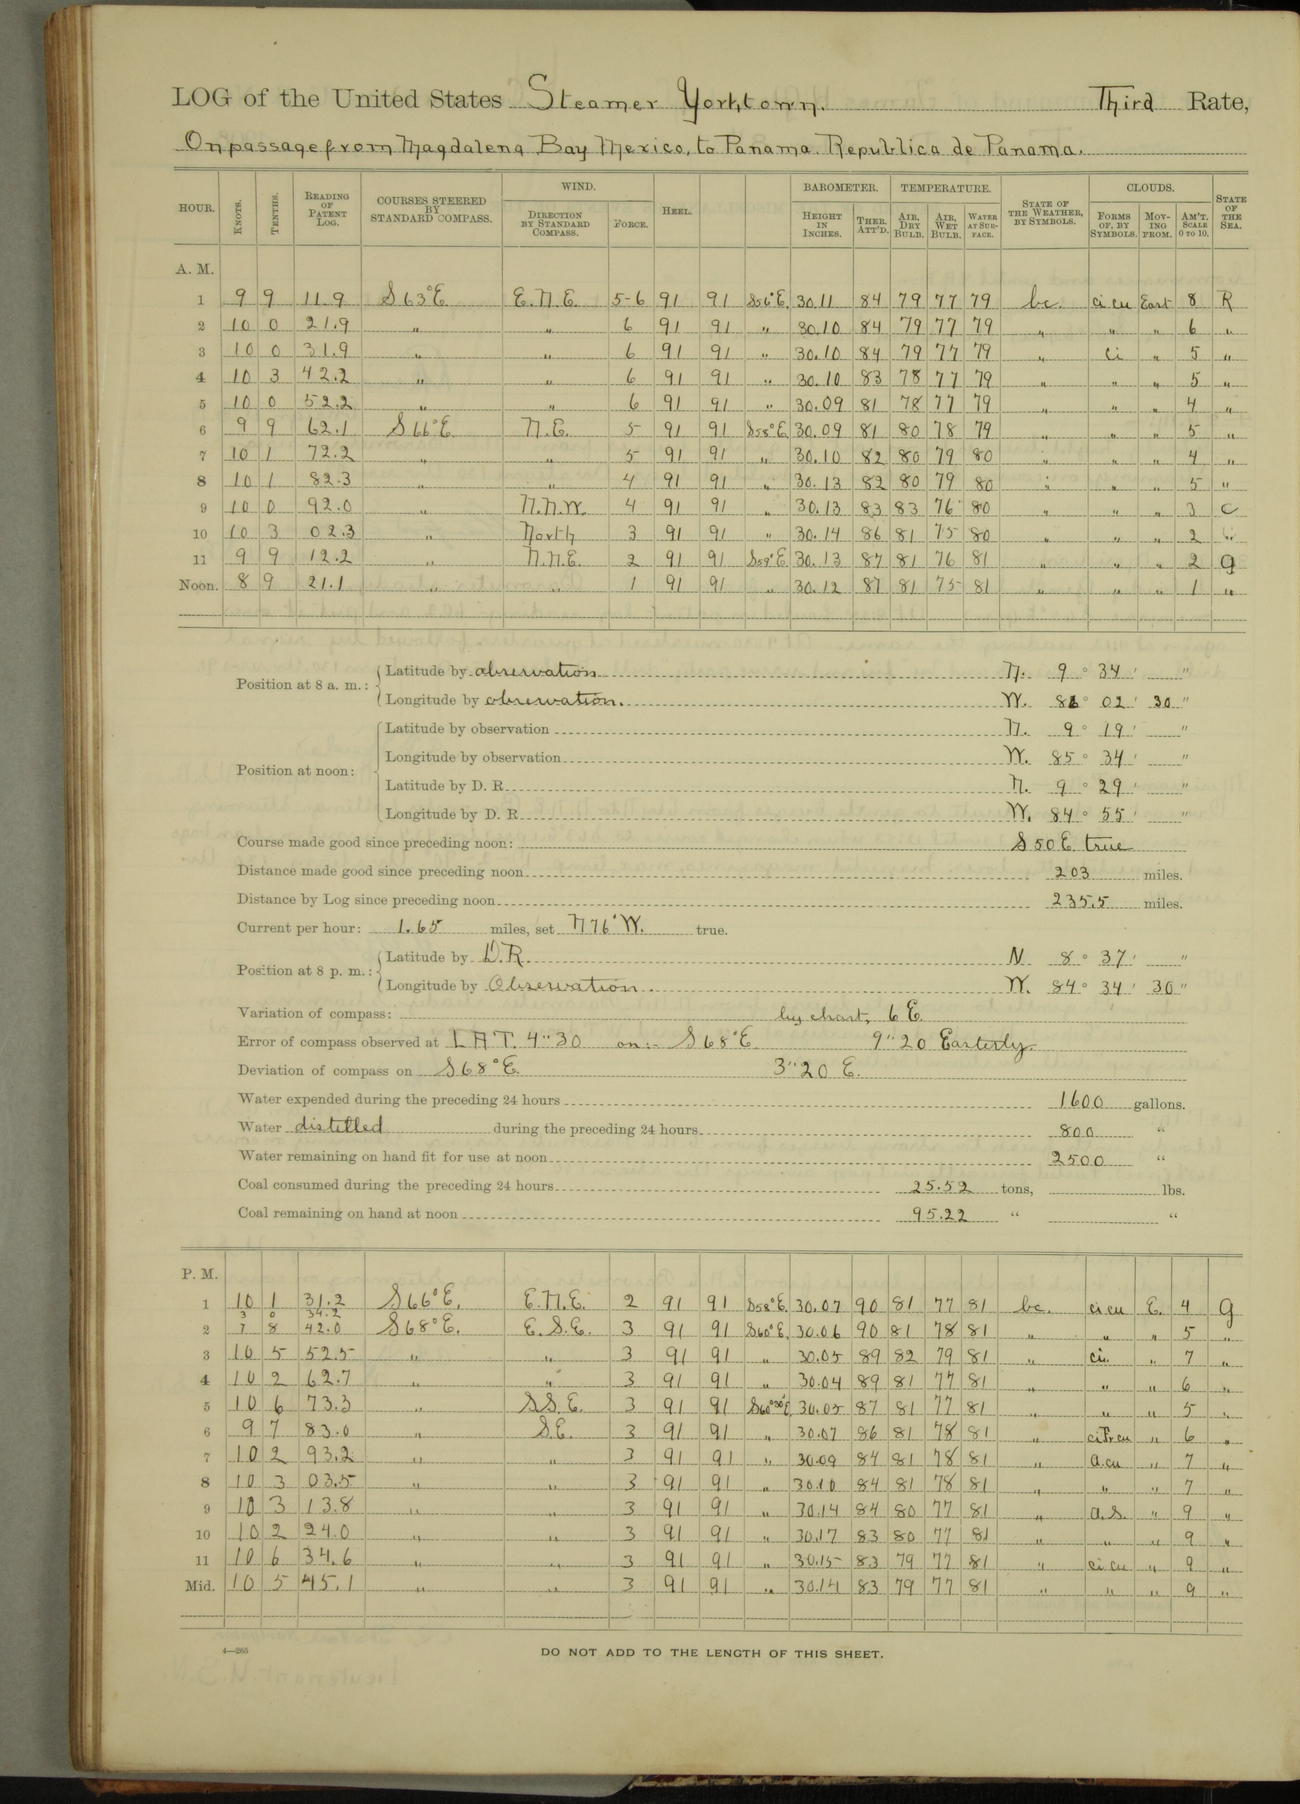 LOG of the United States Steamer Yorktown. Third Rate,
On passage from Magdalena Bay Mexico, to Panama Republica de Panama.
HOUR. KNOTS. TENTHS. READING OF PATENT LOG. COURSES STEERED BY STANDARD COMPASS. WIND. DIRECTION BY STANDARD COMPASS. FORCE. HEEL. BAROMETER. HEIGHT IN INCHES. THER. ATT'D. TEMPERATURE. AIR, DRY BULB. AIR, WET BULB. WATER AT SURFACE. STATE OF THE WEATHER, BY SYMBOLS. CLOUDS. FORMS OF, BY SYMBOLS. MOVING FROM. AM'T. SCALE 0 TO 10. STATE OF THE SEA.
A. M.
1 9 9 11.9 S 63° E E.N.E. 5-6 91 91 S56°E. 30.11 84 79 77 79 bc. ci cu East 8 R
2 10 0 21.9 " " 6 91 91 " 30.10 84 79 77 79 " " " 6 "
3 10 0 31.9 " " 6 91 91 " 30.10 84 79 77 79 " ci " 5 "
4 10 3 42.2 " " 6 91 91 " 30.10 83 78 77 79 " " " 5 "
5 10 0 52.2 " " 6 91 91 " 30.09 81 78 77 79 " " " 4 "
6 9 9 62.1 S 66° E N.E. 5 91 91 S58°E. 30.09 81 80 78 79 " " " 5 "
7 10 1 72.2 " " 5 91 91 " 30.10 82 80 79 80 " " " 4 "
8 10 1 82.3 " " 4 91 91 " 30.13 82 80 79 80 " " " 5 "
9 10 0 92.0 " N.N.W. 4 91 91 " 30.13 83 83 76 80 " " " 3 C
10 10 3 02.3 " North 3 91 91 " 30.14 86 81 75 80 " " " 2 "
11 9 9 12.2 " N.N.E. 2 91 91 S59°E. 30.13 87 81 76 81 " " " 2 g
Noon. 8 9 21.1 " " 1 91 91 " 30.12 87 81 75 81 " " " 1 "
Position at 8 a. m.: Latitude by observation N. 9 ° 34 ' "
Longitude by observation. W. 86 ° 02 ' 30 "
Position at noon: Latitude by observation N. 9 ° 19 ' "
Longitude by observation W. 85 ° 34 ' "
Latitude by D. R. N. 9 ° 29 ' "
Longitude by D. R. W. 84 ° 55 ' "
Course made good since preceding noon: S 50 E. true
Distance made good since preceding noon 203 miles.
Distance by Log since preceding noon 235.5 miles.
Current per hour: 1.65 miles, set N 76° W. true.
Position at 8 p. m.: Latitude by D.R. N 8 ° 37 ' "
Longitude by Observation. W. 84 ° 34 ' 30 "
Variation of compass: by chart, 6 E.
Error of compass observed at L.A.T. 4 30 on:- S 68° E. 9 20 Easterly.
Deviation of compass on S 68° E. 3 20 E.
Water expended during the preceding 24 hours 1600 gallons.
Water distilled during the preceding 24 hours 800 "
Water remaining on hand fit for use at noon 2500 "
Coal consumed during the preceding 24 hours 25.52 tons, lbs.
Coal remaining on hand at noon 95.22 " "
P. M.
1 10 1 31.2 S 66° E. E.N.E. 2 91 91 S58°E. 30.07 90 81 77 81 bc. ci cu E. 4 g
3 0 34.2
2 7 8 42.0 S 68° E. E.S.E. 3 91 91 S60°E. 30.06 90 81 78 81 " " " 5 "
3 10 5 52.5 " " 3 91 91 " 30.05 89 82 79 81 " ci. " 7 "
4 10 2 62.7 " " 3 91 91 " 30.04 89 81 77 81 " " " 6 "
5 10 6 73.3 " S.S.E. 3 91 91 S60°30'E. 30.05 87 81 77 81 " " " 5 "
6 9 7 83.0 " S.E. 3 91 91 " 30.07 86 81 78 81 " ci Fr cu " 6 "
7 10 2 93.2 " " 3 91 91 " 30.09 84 81 78 81 " a.cu " 7 "
8 10 3 03.5 " " 3 91 91 " 30.10 84 81 78 81 " " " 7 "
9 10 3 13.8 " " 3 91 91 " 30.14 84 80 77 81 " a.s. " 9 "
10 10 2 24.0 " " 3 91 91 " 30.17 83 80 77 81 " " " 9 "
11 10 6 34.6 " " 3 91 91 " 30.15 83 79 77 81 " ci cu " 9 "
Mid. 10 5 45.1 " " 3 91 91 " 30.14 83 79 77 81 " " " 9 "
4—265 DO NOT ADD TO THE LENGTH OF THIS SHEET.